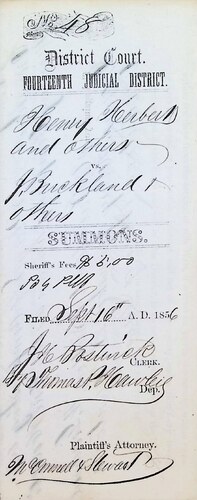 No 48
District Court.
FOURTEENTH JUDICIAL DISTRICT.
Henry Herbert
and others
vs.
J Brickland &
others
SUMMONS.
Sheriff's Fees, $5,00
FILED Sept 16th A. D. 1856
CLERK.
Thomas P. Hawley
Dep.
Plaintiff's Attorney.
McConnell & Stewart